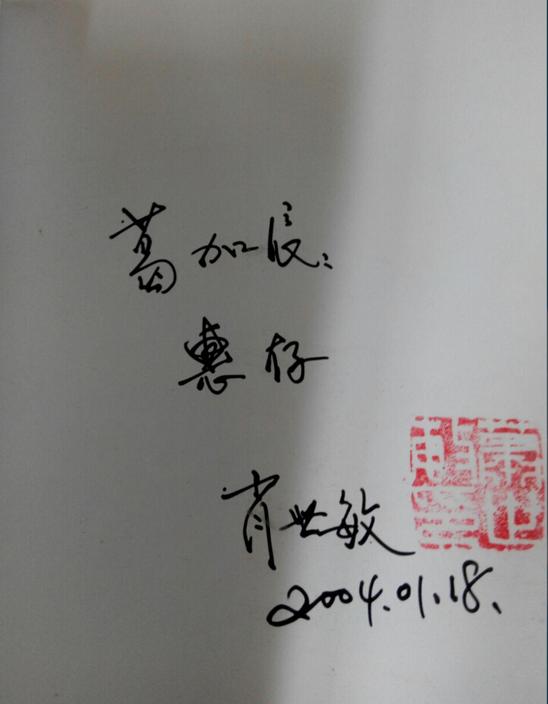 葛加良:
惠存
肖世敏
2004.01.18.